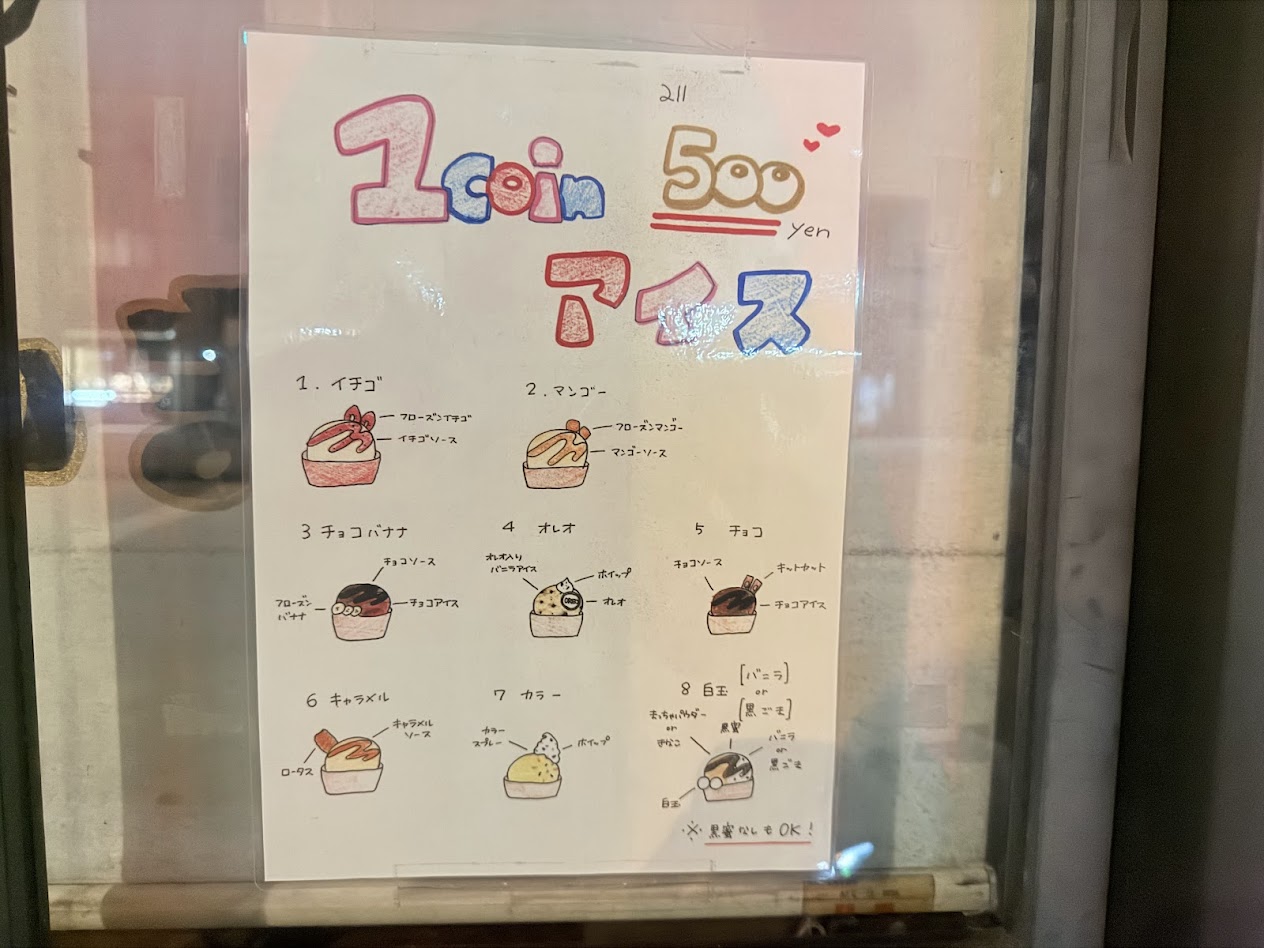 211
1coin 500
yen
アイス
1. イチゴ
フローズンイチゴ
イチゴソース
2. マンゴー
フローズンマンゴー
マンゴーソース
3 チョコバナナ
チョコソース
フローズン
バナナ
チョコアイス
4 オレオ
オレオ入り
バニラアイス
ホイップ
オレオ
OREO
5 チョコ
チョコソース
キットカット
チョコアイス
6 キャラメル
キャラメル
ソース
ロータス
7 カラー
カラー
スプレー
ホイップ
8 白玉 [バニラ]
or
[黒ごま]
まっちゃパウダー
or
きなこ
黒蜜
バニラ
or
黒ごま
白玉
※黒蜜なしもOK!